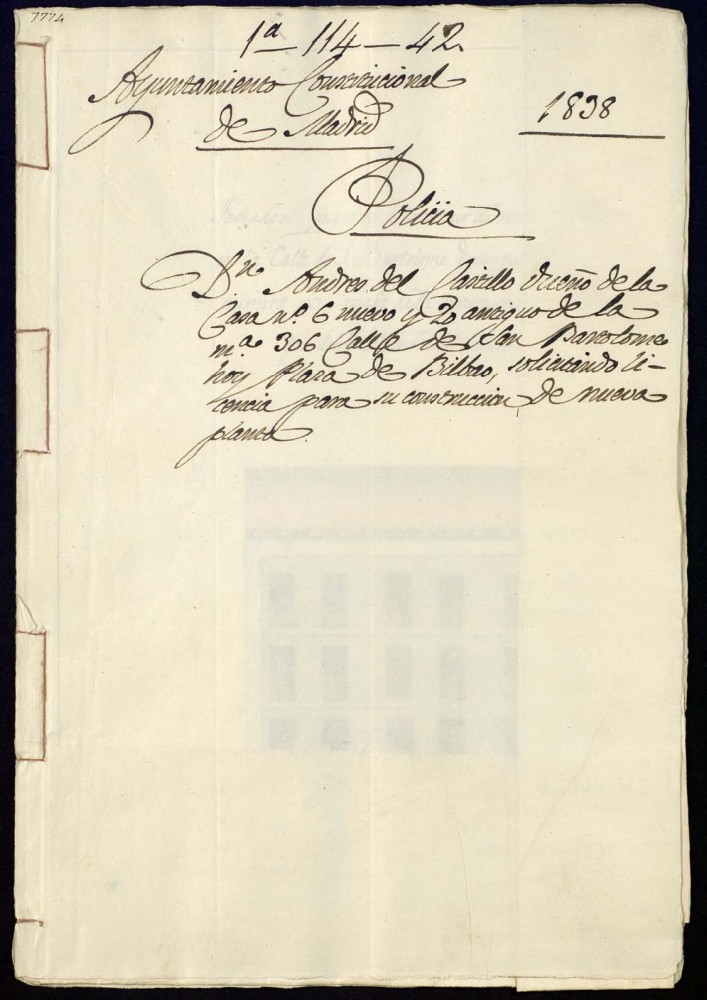 7774
1ª–114–42.
Ayuntamiento Constitucional
de Madrid
1838
Policia
Dn. Andres del Castillo dueño de la
Casa nº 6 nuevo y 20 antiguo de la
m.ª 306 Calle de San Bartolome
hoy Plaza de Bilbao, solicitando li-
cencia para su construccion de nueva
planta.